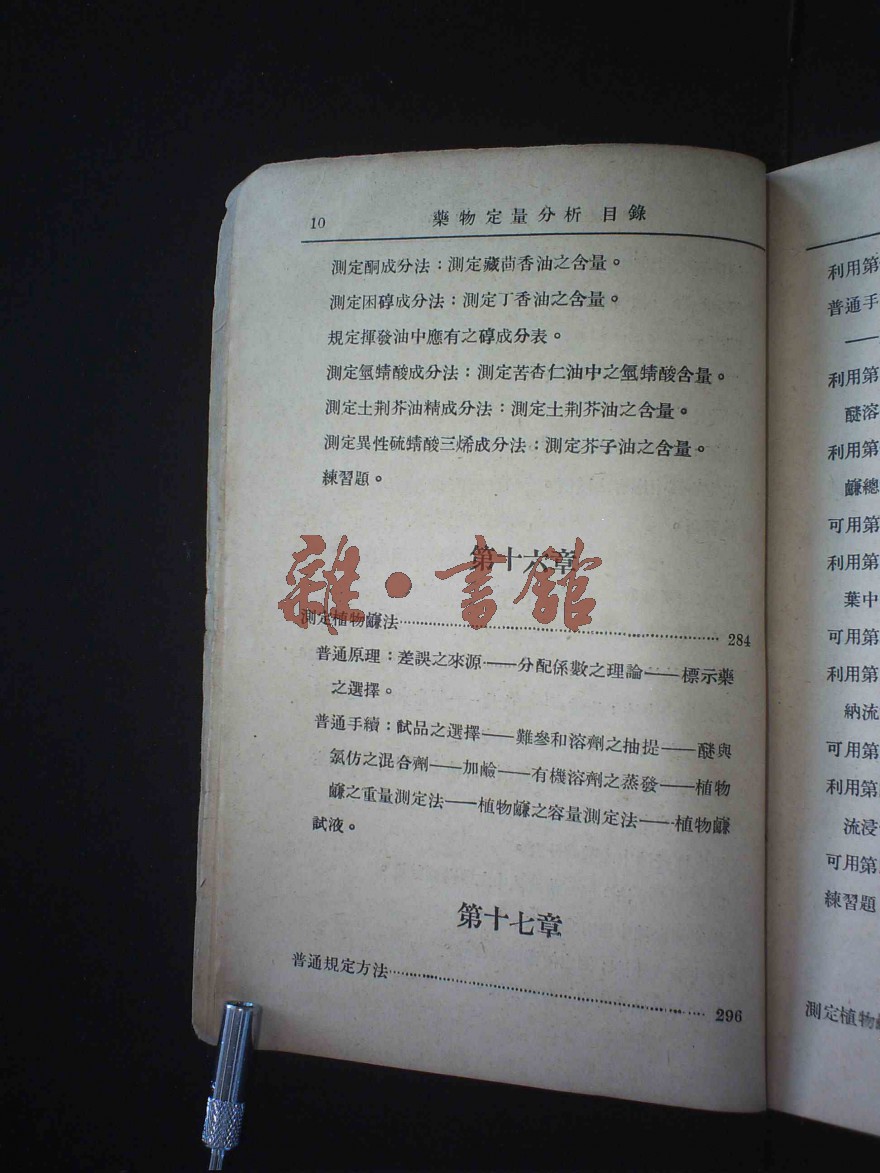 10 藥物定量分析 目錄
測定酮成分法：測定藏茴香油之含量。
測定困醇成分法：測定丁香油之含量。
規定揮發油中應有之醇成分表。
測定氫蜻酸成分法：測定苦杏仁油中之氫蜻酸含量。
測定土荆芥油精成分法：測定土荆芥油之含量。
測定異性硫蜻酸三烯成分法：測定芥子油之含量。
練習題。
第十六章
雜·書館
測定植物鹻法 284
普通原理：差誤之來源——分配係數之理論——標示藥
之選擇。
普通手續：試品之選擇——難參和溶劑之抽提——醚與
氯仿之混合劑——加鹼——有機溶劑之蒸發——植物
鹻之重量測定法——植物鹻之容量測定法——植物鹻
試液。
第十七章
普通規定方法 296
利用第
普通手
利用第
醚溶
利用第
鹻總
可用第
利用第
葉中
可用第
利用第
納流
可用第
利用第
流浸
可用第
練習題
測定植物